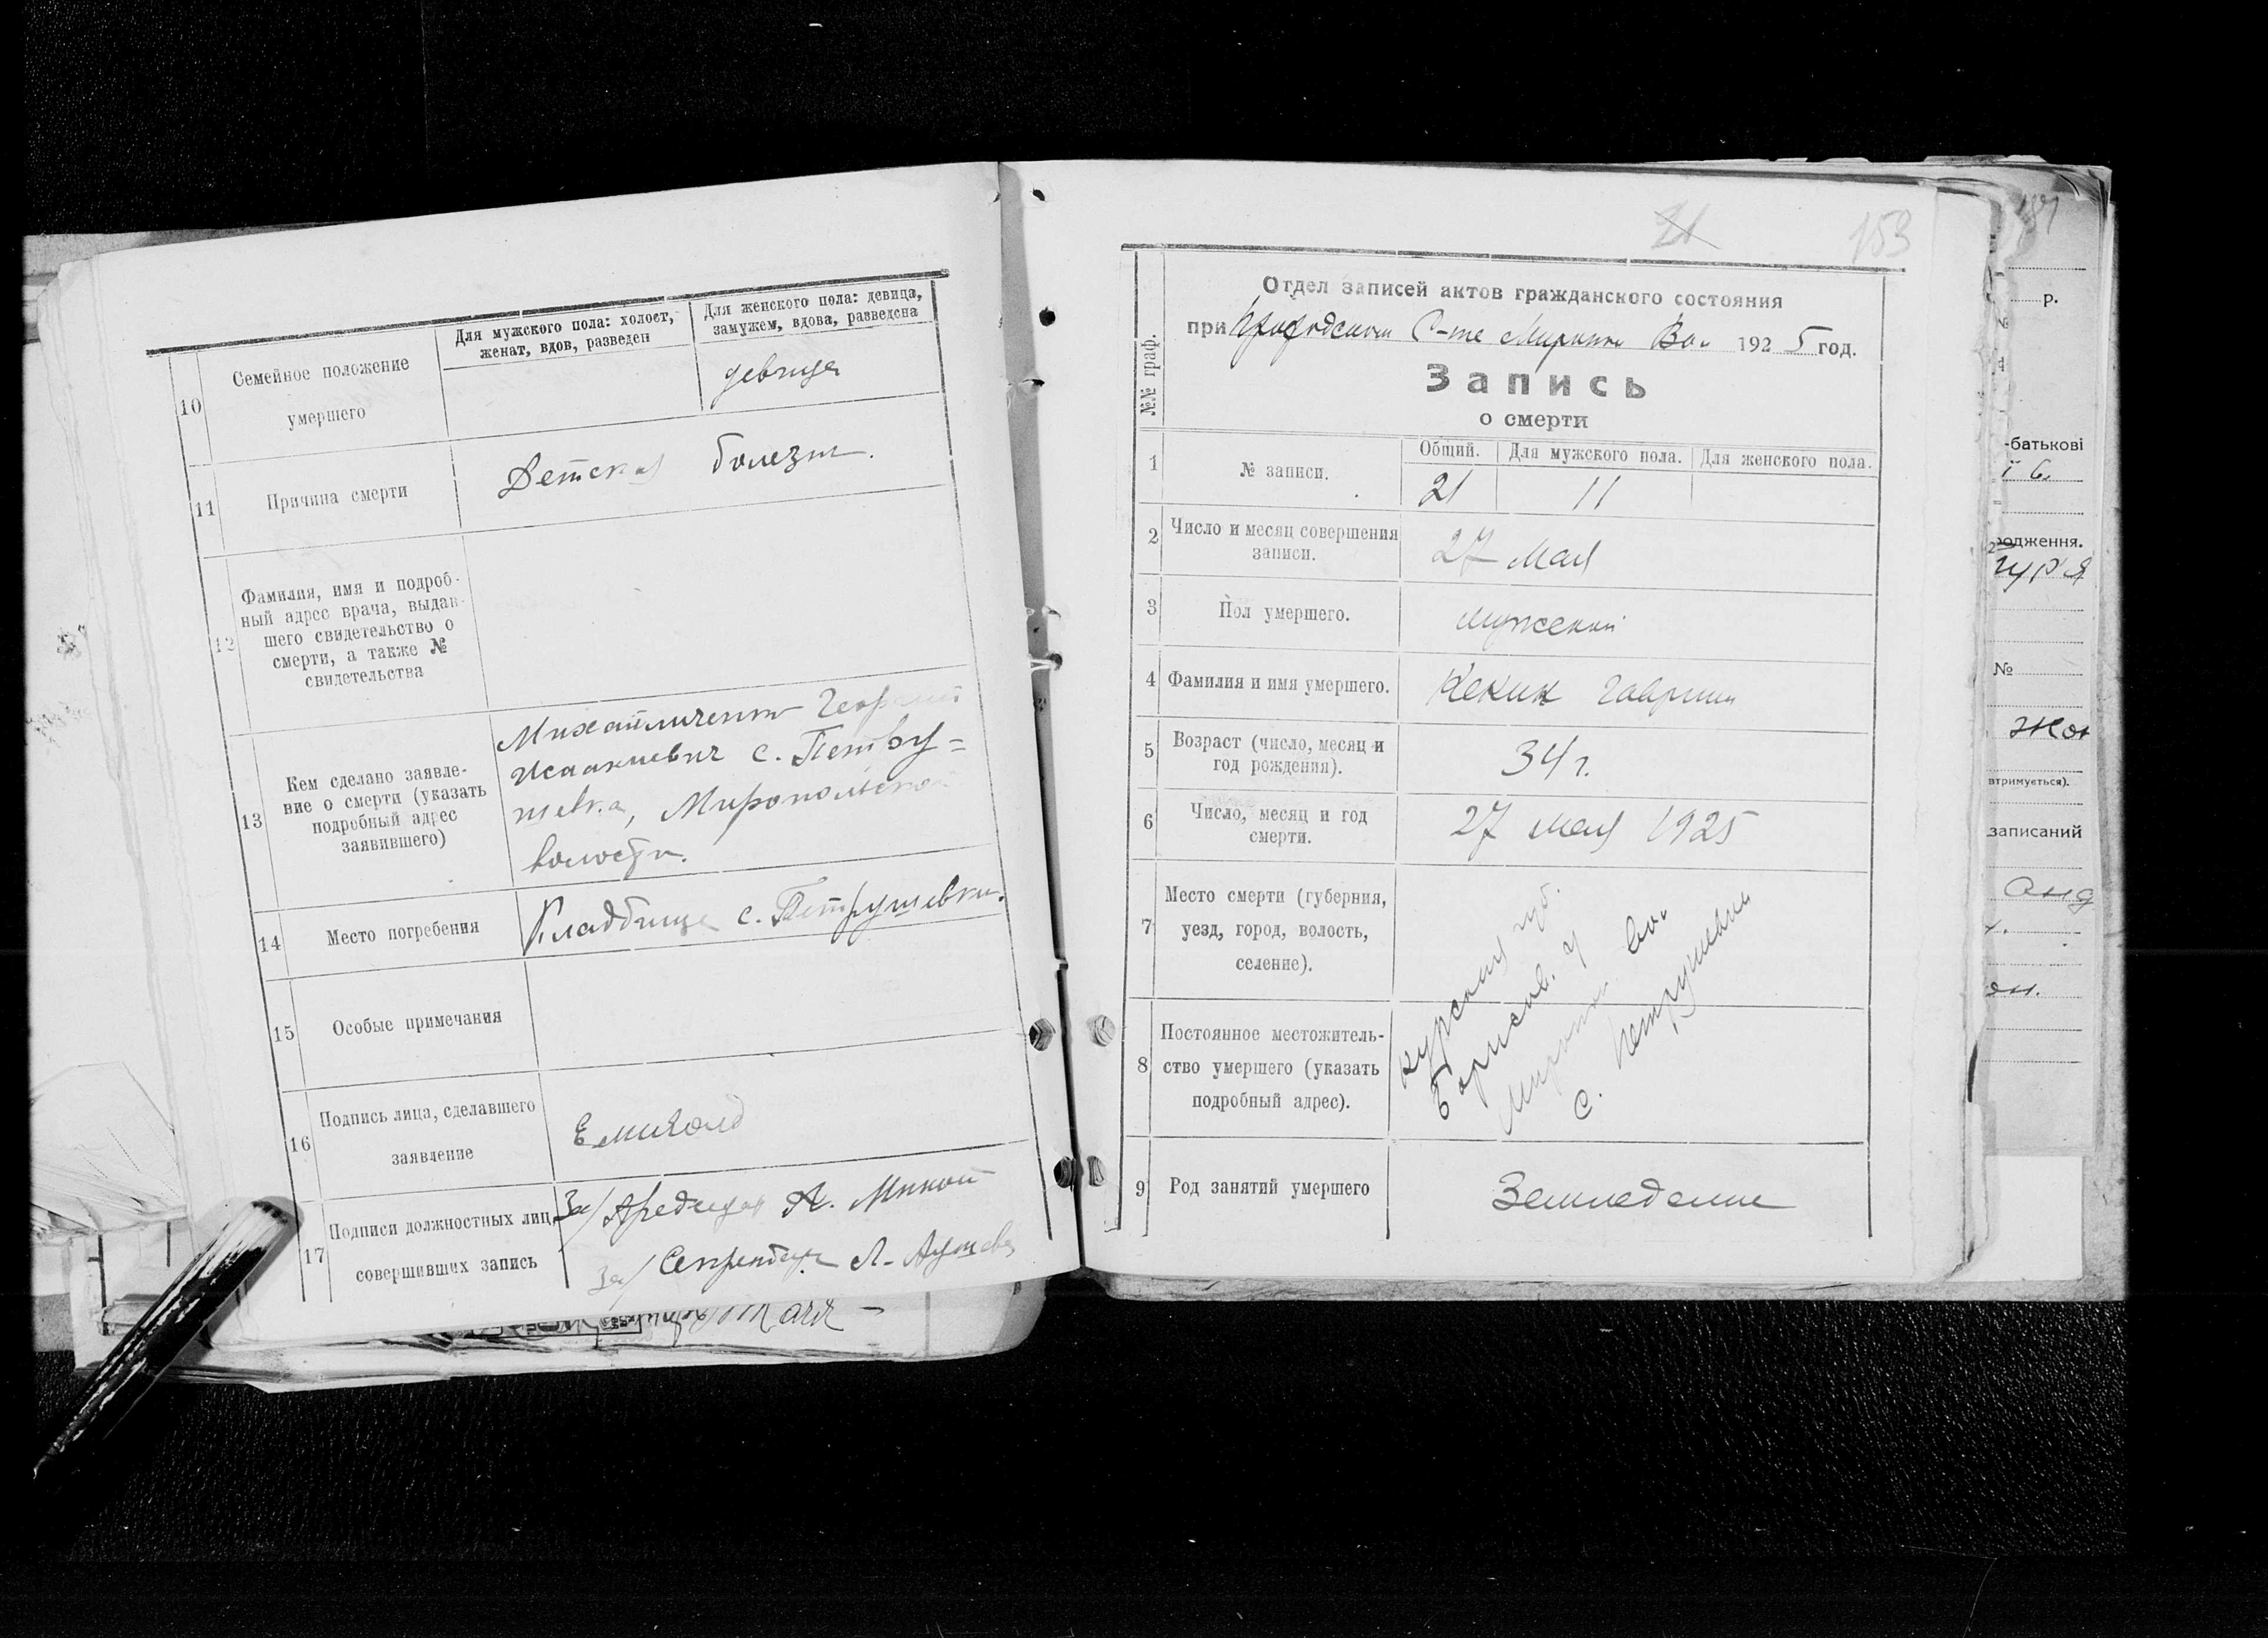 10
Семейное положение
умершего
Для мужского пола: холост,
женат, вдов, разведен
Для женского пола: девица,
замужем, вдова, разведена
девица
11
Причина смерти
Детская болезнь.
12
Фамилия, имя и подроб-
ный адрес врача, выдан-
шего свидетельство о
смерти, а также №
свидетельства
13
Кем сделано заявле-
ние о смерти (указать
подробный адрес
заявившего)
Михайличенко Георгий
Исаакиевич с. Петру=
шевка, Миропольской
волости.
14
Место погребения
Кладбище с. Петрушевки.
15
Особые примечания
16
Подпись лица, сделавшего
заявление
17
Подписи должностных лиц,
совершивших запись
За/ А. Минай
За/ Секретаря Л.
21
153
№№ граф.
Отдел записей актов гражданского состояния
при С-те Вол 1925 год.
Запись
о смерти
1
№ записи.
Общий.
Для мужского пола.
Для женского пола.
21
11
2
Число и месяц совершения
записи.
27 Мая
3
Пол умершего.
мужской
4
Фамилия и имя умершего.
Кекин Гаврил
5
Возраст (число, месяц и
год рождения).
34 г.
6
Число, месяц и год
смерти.
27 мая 1925
7
Место смерти (губерния,
уезд, город, волость,
селение).
8
Постоянное местожитель-
ство умершего (указать
подробный адрес).
Курская губ.
Борисов. у
Миропол вол
с. Петрушевка
9
Род занятий умершего
Земледелие
р.
№
-батькові
родження.
№
втримується).
записаний